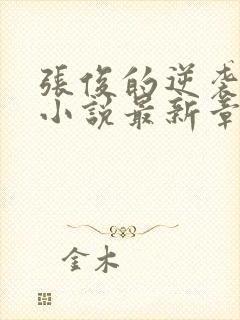 張俊的逆袭
小說最新章
金木